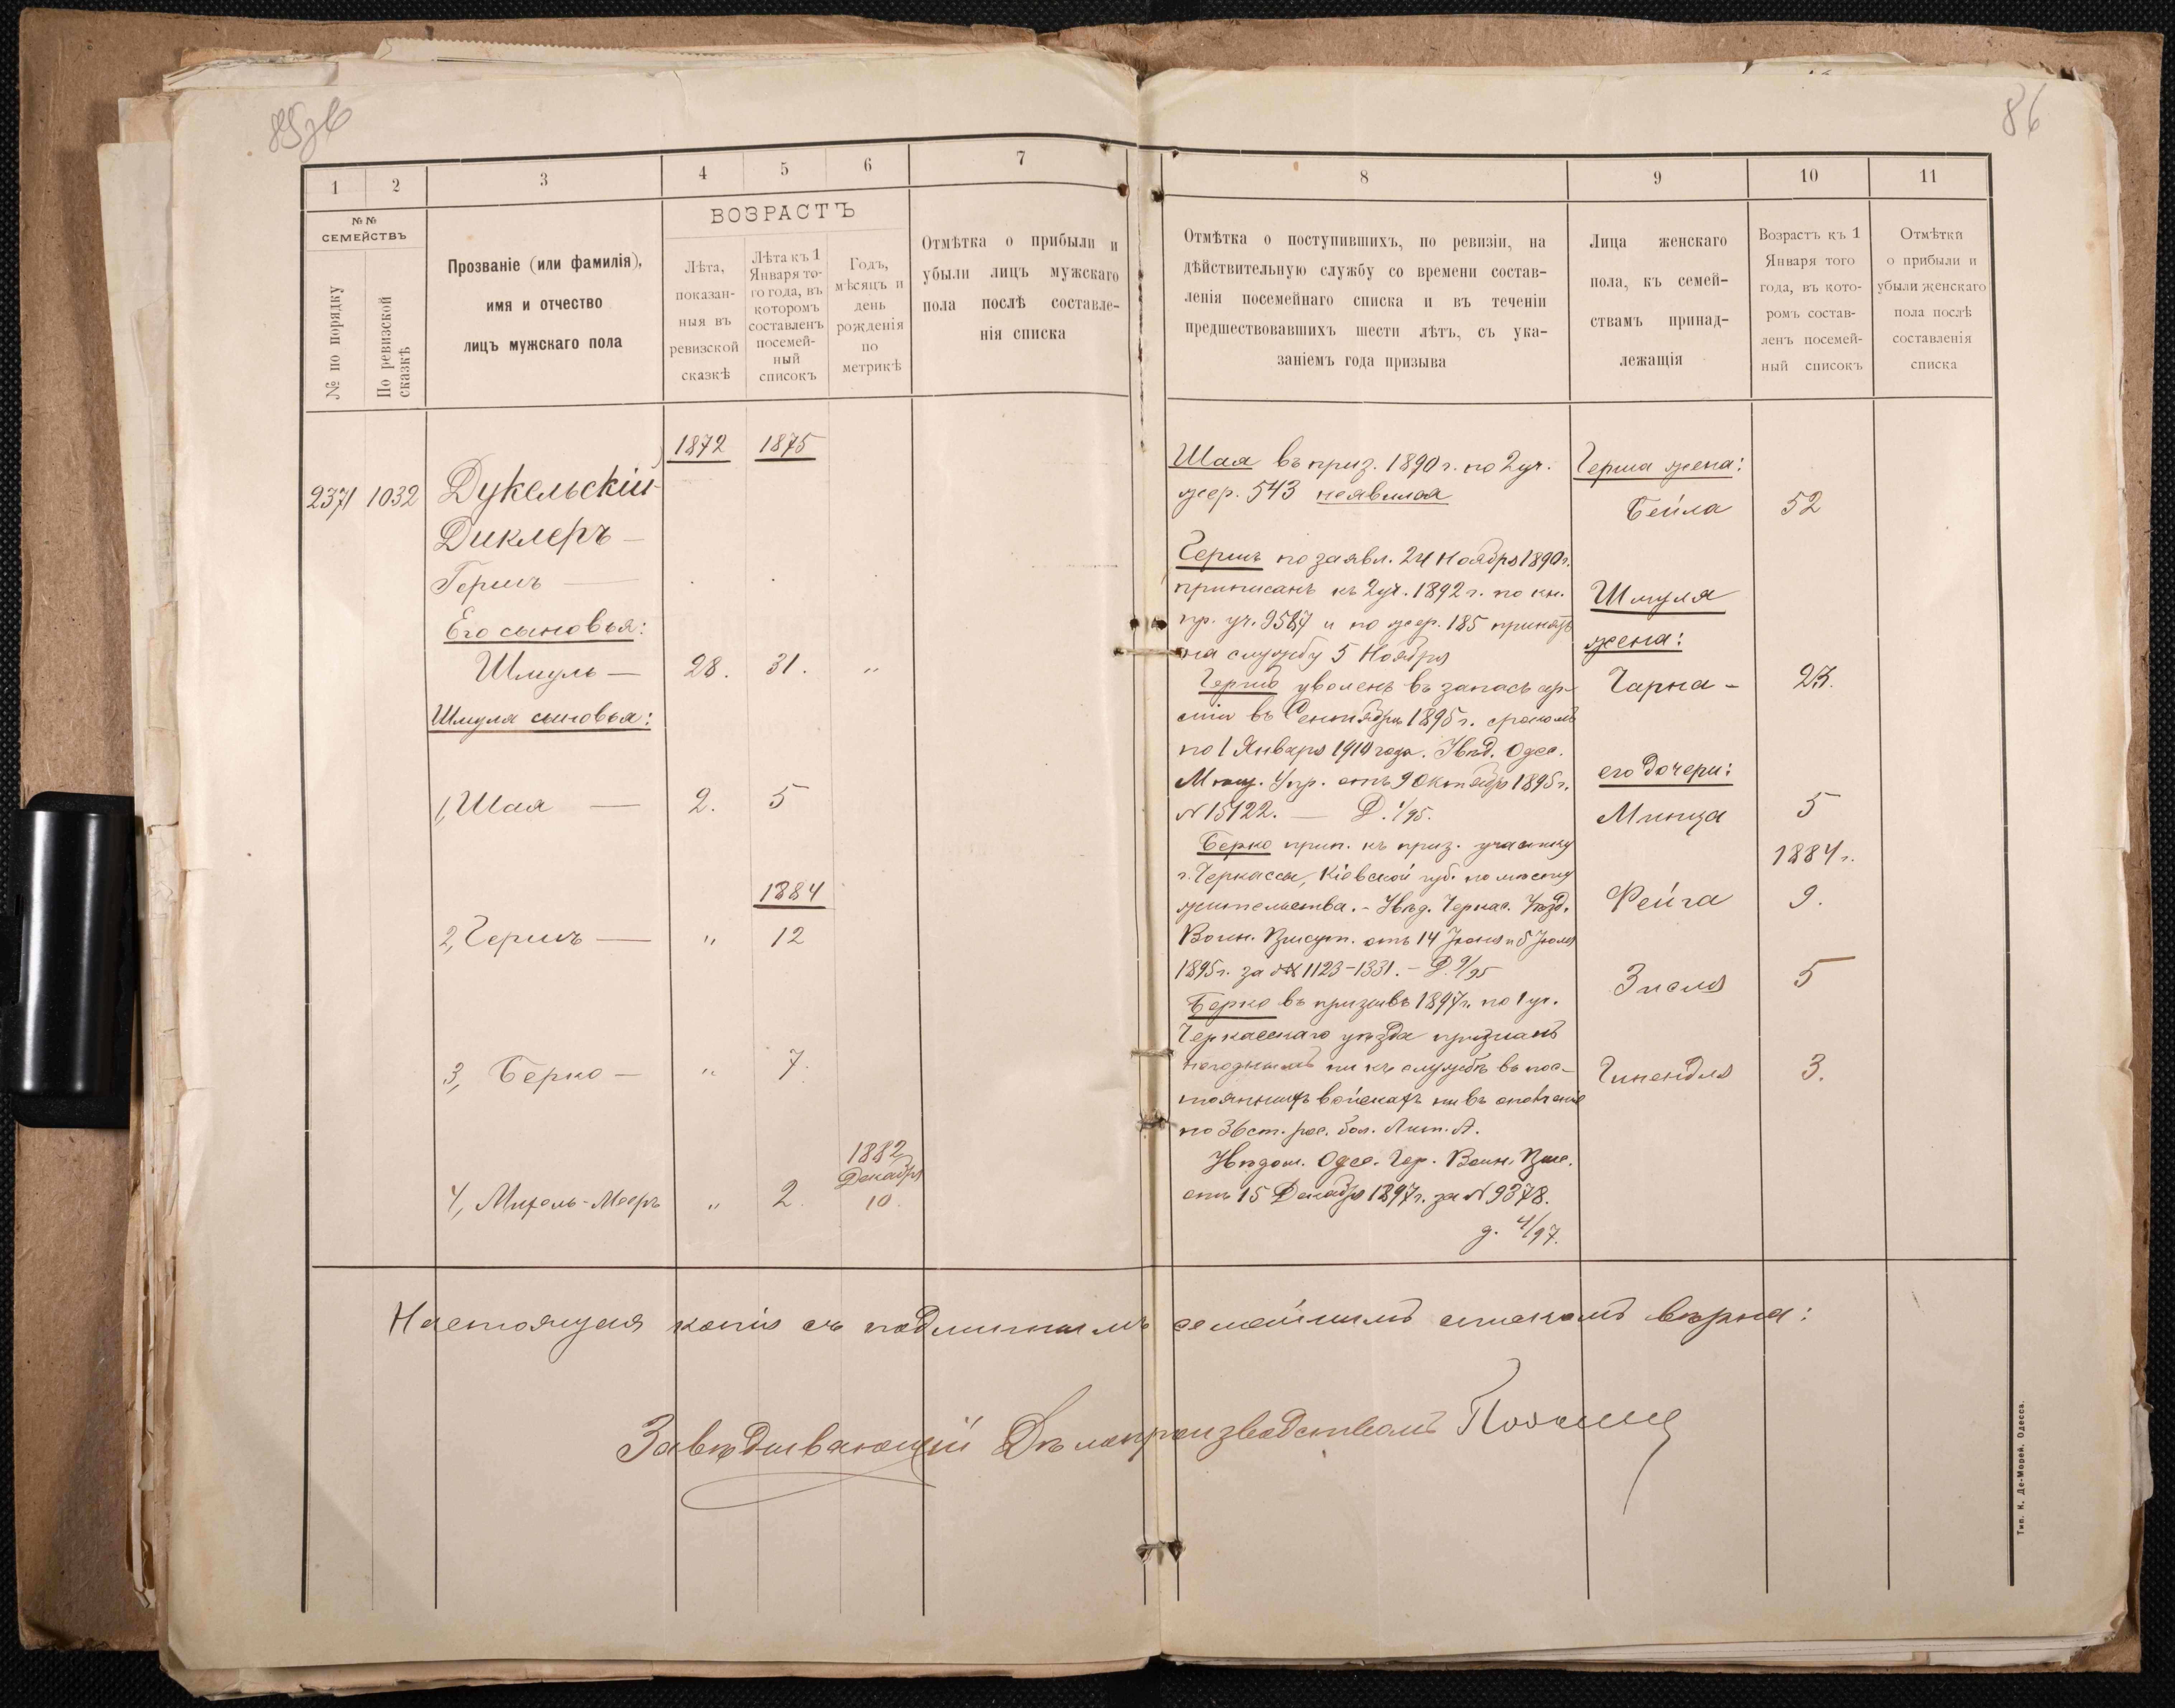 85об
86
1
2
3
4
5
6
7
8
9
10
11
№№
СЕМЕЙСТВЪ
№ по порядку
По ревизской
сказкѣ
Прозваніе (или фамилія),
имя и отчество
лицъ мужскаго пола
ВОЗРАСТЪ
Лѣта,
показан-
ныя въ
ревизской
сказкѣ
Лѣта къ 1
Января то-
го года, въ
которомъ
составленъ
посемей-
ный
списокъ
Годъ,
мѣсяцъ и
день
рожденія
по
метрикѣ
Отмѣтка о прибыли и
убыли лицъ мужскаго
пола послѣ составле-
нія списка
Отмѣтка о поступившихъ, по ревизіи, на
дѣйствительную службу со времени состав-
ленія посемейнаго списка и въ теченіи
предшествовавшихъ шести лѣтъ, съ ука-
заніемъ года призыва
Лица женскаго
пола, къ семей-
ствамъ принад-
лежащія
Возрастъ къ 1
Января того
года, въ кото-
ромъ состав-
ленъ посемей-
ный списокъ
Отмѣтки
о прибыли и
убыли женскаго
пола послѣ
составленія
списка
1872 1875
2371 1032 Дукельскій
Диклеръ —
Гершъ —
Его сыновья:
Шмуль — 28. 31. "
Шмуля сыновья:
1, Шая — 2. 5
1884
2, Гершъ — " 12
3, Берко — " 7.
1882
Декабря
4, Михель-Мееръ " 2. 10.
Шая въ приз. 1890 г. по 2 уч.
жер. 543 неявился
Гершъ по заявл. 24 Ноября 1890 г.
приписанъ къ 2 уч. 1892 г. по кн.
пр. уч. 9587 и по жер. 185 принятъ
на службу 5 Ноября
Гершъ уволенъ въ запасъ ар-
міи въ Сентябрѣ 1895 г. срокомъ
по 1 Января 1910 года. Увѣд. Одес.
Мѣщ. Упр. отъ 9 Октября 1895 г.
N 15122. — Д. 1/95.
Берко прип. къ приз. участку
г. Черкассы, Кіевской губ. по мѣсту
жительства. - Увѣд. Черкас. Уѣзд.
Воин. Присут. отъ 14 Іюня и 5 Іюля
1895 г. за №№ 1123-1331. - Д. 9/95
Берко въ призывѣ 1897 г. по 1 уч.
Черкасскаго уѣзда признанъ
негоднымъ ни къ службѣ въ пос-
тоянныхъ войскахъ ни въ ополченіе
по 36 ст. рос. бол. Лит. А.
Увѣдом. Одес. Гор. Воин. Прис.
отъ 15 Декабря 1897 г. за N 9378.
д. 4/97.
Герша жена:
Бейла 52
Шмуля
жена:
Чарна -
его дочери:
Минца 5
1884 г.
Фейга 9.
Зисля 5
Гинендля 3.
Настоящая копія съ подлиннымъ семейнымъ спискомъ вѣрна:
Завѣдывающій Дѣлопроизводствомъ
Тип. К. Де-Моней. Одесса.